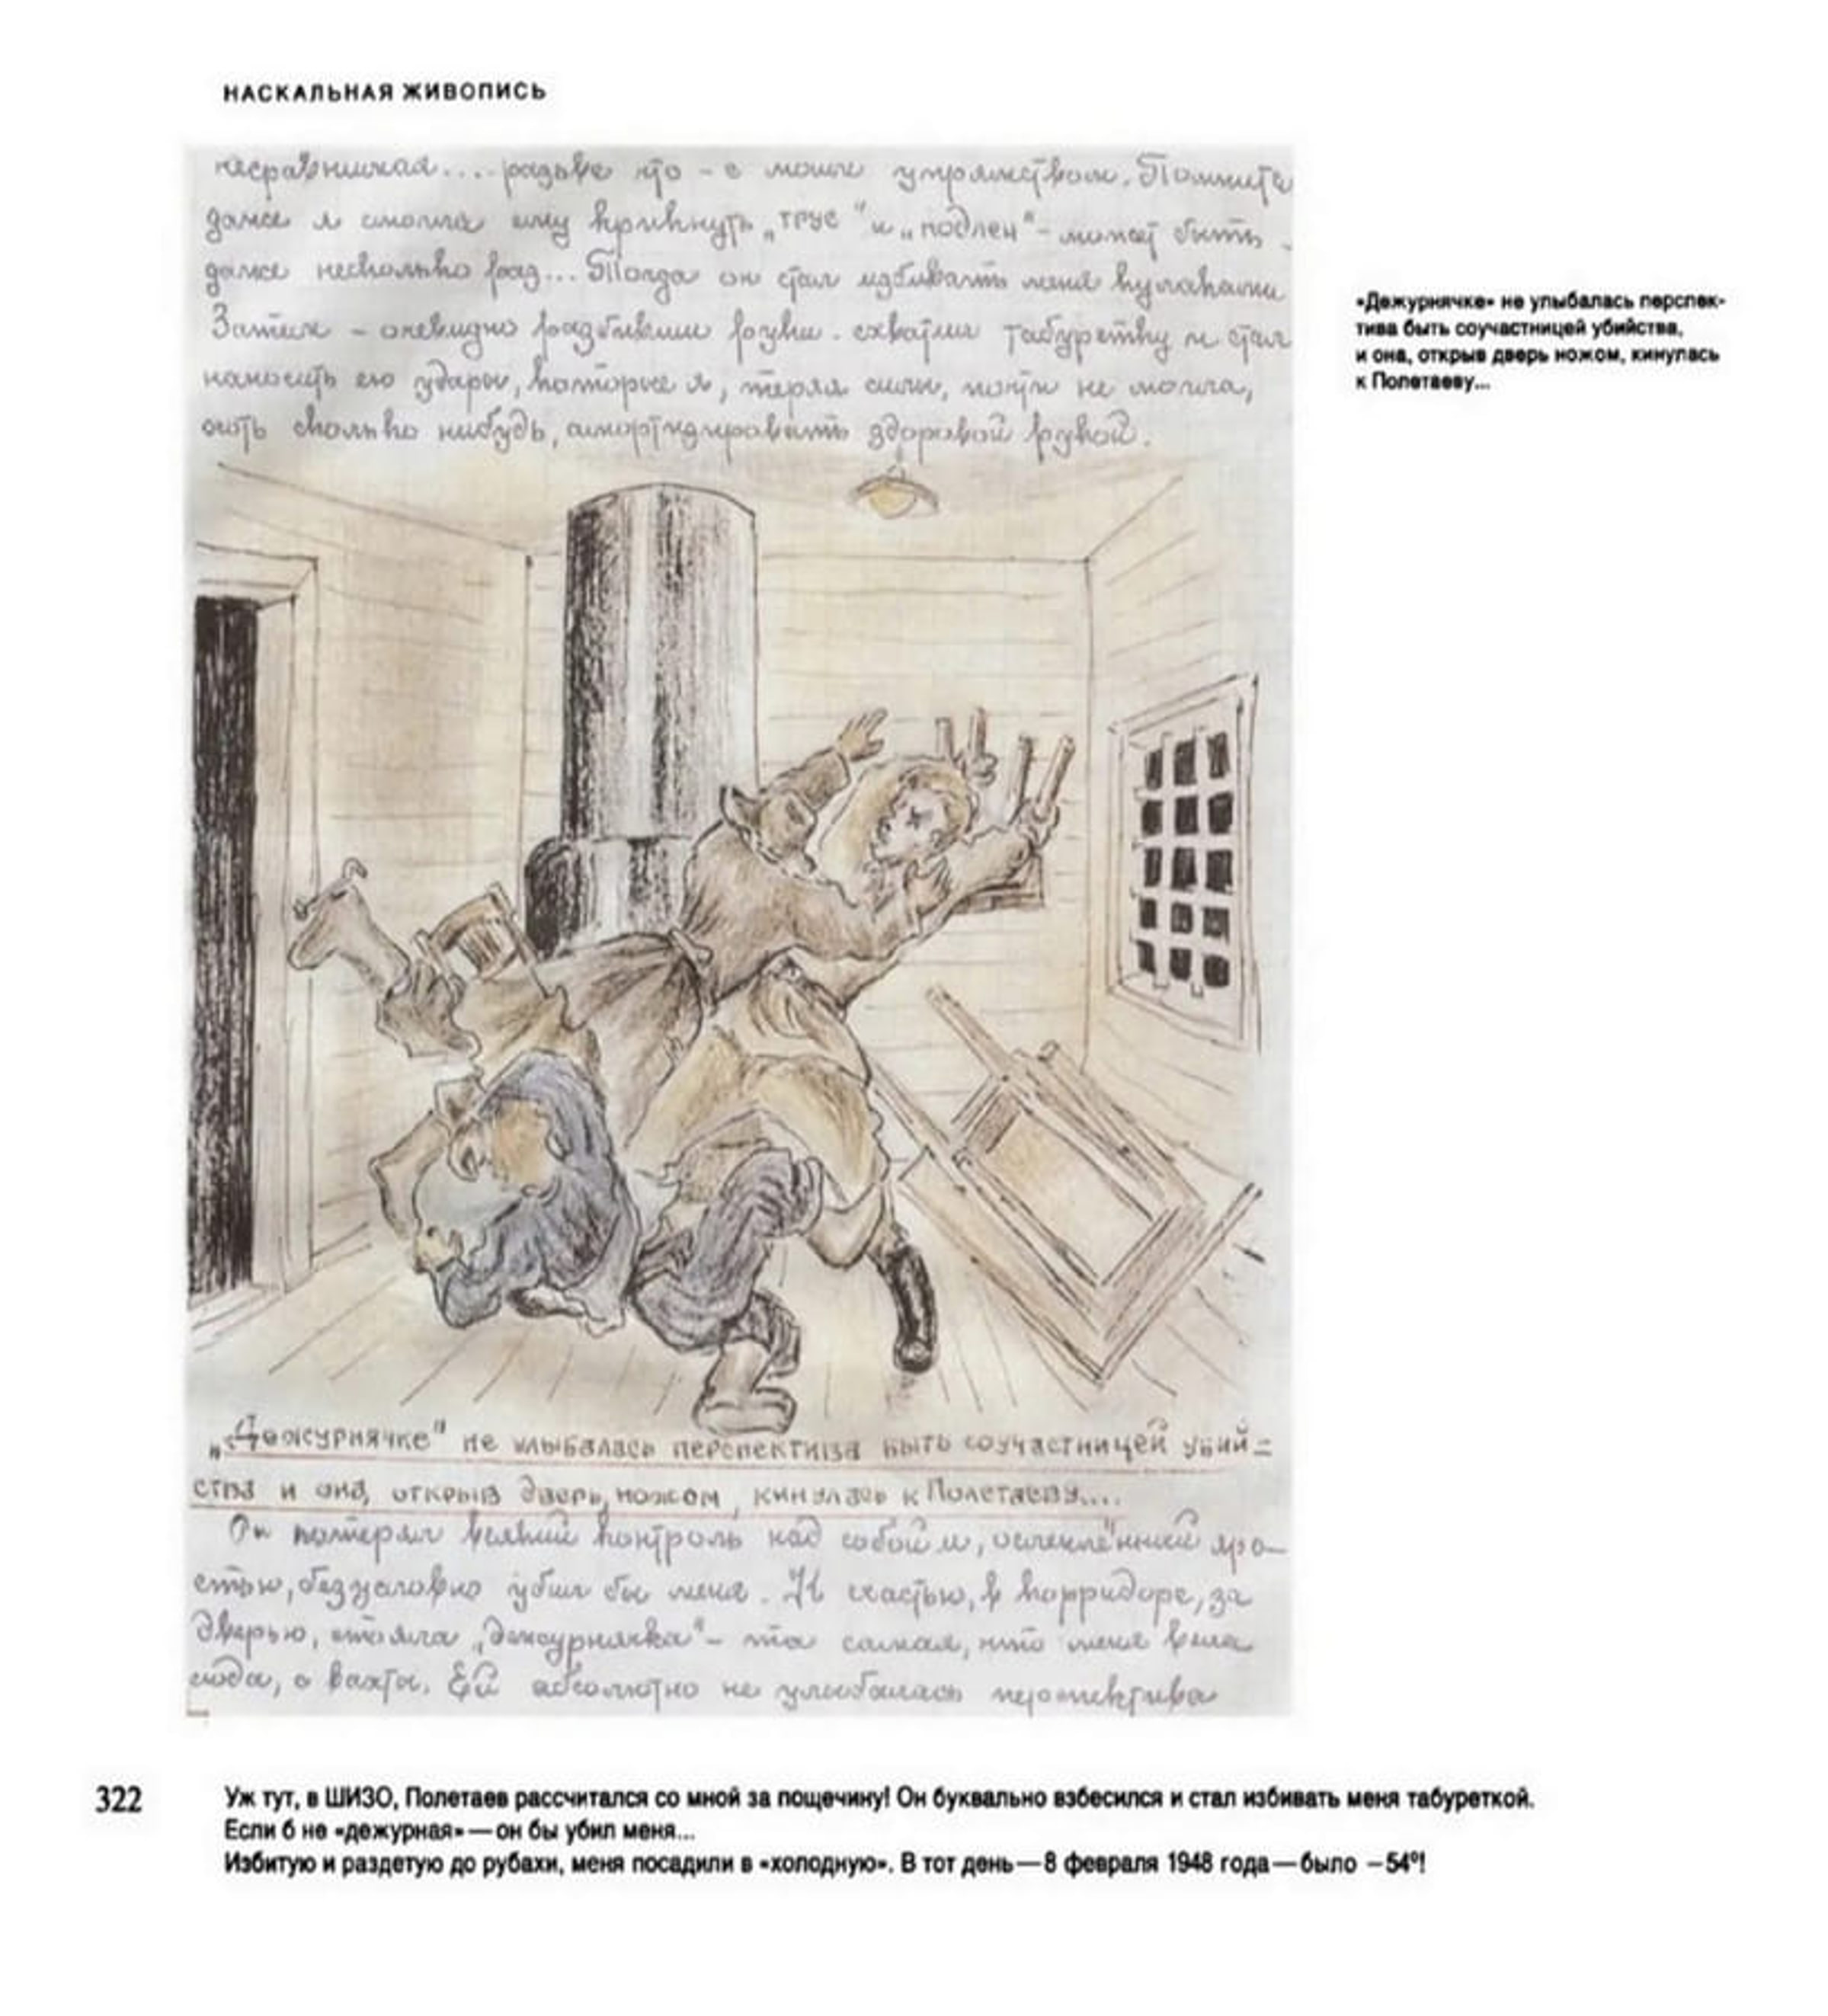 НАСКАЛЬНАЯ ЖИВОПИСЬ
несравнимая.... разьве что - с моим упрямством. Помните
даже я смогла ему крикнуть „трус" и „подлец" - может быть
даже несколько раз... Тогда он стал избивать меня кулаками
Затем - очевидно разбивши руки - схватил табуретку и стал
наносить ею удары, которые я, теряя силы, почти не могла,
хоть сколько нибудь, амортизировать здоровой рукой.
«Дежурнячке» не улыбалась перспек-
тива быть соучастницей убийства,
и она, открыв дверь ножом, кинулась
к Полетаеву...
„Дежурнячке" не улыбалась перспектива быть соучастницей убий=
ства и она, открыв дверь, ножом, кинулась к Полетаеву....
Он потерял всякий контроль над собой и, ослеплённый яро-
стью, безусловно убил бы меня. К счастью, в корридоре, за
дверью, стояла „дежурнячка" - та самая, что меня вела
сюда, с вахты. Ей абсолютно не улыбалась перспектива
322
Уж тут, в ШИЗО, Полетаев рассчитался со мной за пощечину! Он буквально взбесился и стал избивать меня табуреткой.
Если б не «дежурная»—он бы убил меня...
Избитую и раздетую до рубахи, меня посадили в «холодную». В тот день—8 февраля 1948 года—было –54°!